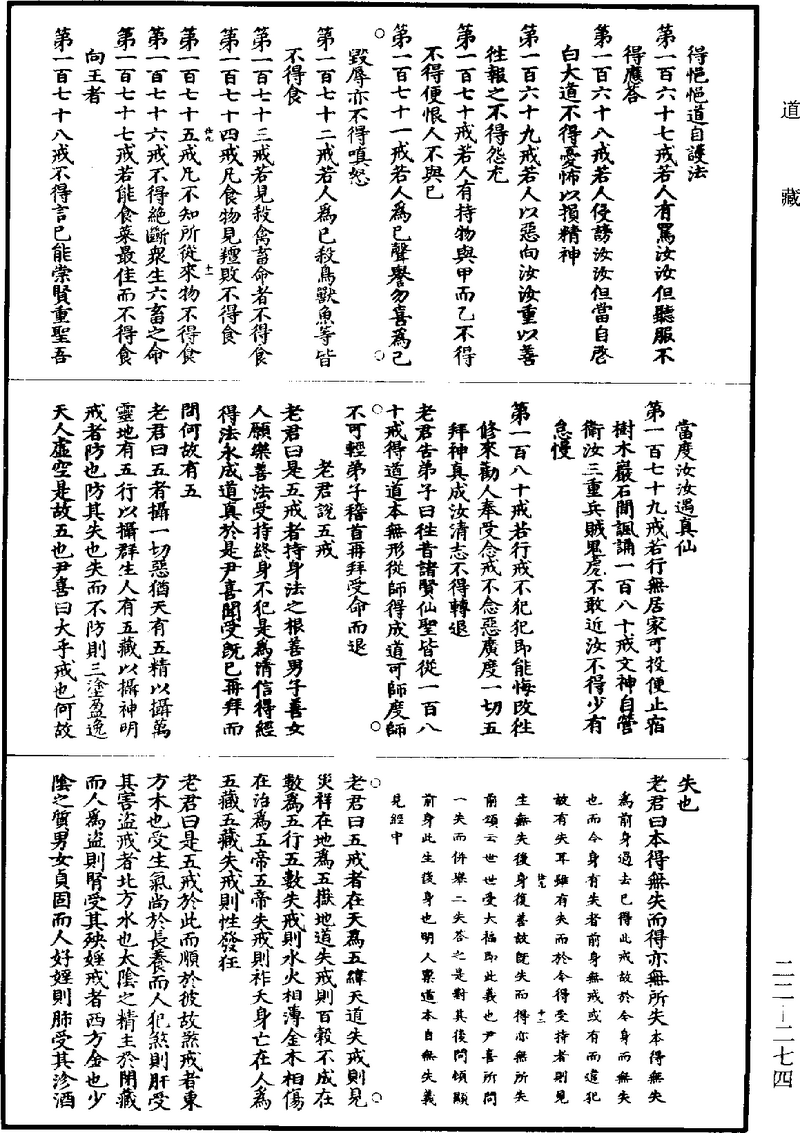 道藏
得悒悒道自護法
第一百六十七戒若人有罵汝汝但聽服不
得應答
第一百六十八戒若人侵謗汝汝但當自啓
白大道不得憂怖以損精神
第一百六十九戒若人以惡向汝汝重以善
往報之不得怨尤
第一百七十戒若人有持物與甲而乙不得
不得便恨人不與已
第一百七十一戒若人爲已聲譽勿喜爲己
毀辱亦不得嗔怒
第一百七十二戒若人爲已殺鳥獸魚等皆
不得食
第一百七十三戒若見殺禽畜命者不得食
第一百七十四戒凡食物見羶敗不得食
第一百七十五戒凡不知所從來物不得食
第一百七十六戒不得絕斷衆生六畜之命
第一百七十七戒若能食菜最佳而不得食
向王者
第一百七十八戒不得言已能崇賢重聖吾
當度汝汝遇真仙
第一百七十九戒若行無居家可投便止宿
樹木巖石間諷誦一百八十戒文神自營
衛汝三重兵賊鬼虎不敢近汝不得少有
怠慢
第一百八十戒若行戒不犯犯即能悔改往
修來勸人奉受念戒不念惡廣度一切五
拜神真成汝清志不得轉退
老君告弟子曰往昔諸賢仙聖皆從一百八
十戒得道道本無形從師得成道可師度師
不可輕弟子稽首再拜受命而退
老君說五戒
老君曰是五戒者持身法之根善男子善女
人願樂善法受持終身不犯是爲清信得經
得法永成道真於是尹喜聞受既已再拜而
問何故有五
老君曰五者攝一切惡猶天有五精以攝萬
靈地有五行以攝群生人有五藏以攝神明
戒者防也防其失也失而不防則三塗盈逸
天人虛空是故五也尹喜曰大乎戒也何故
失也
老君曰本得無失而得亦無所失本得無失
爲前身過去已得此戒故於今身而無失
也而今身有失者前身無戒或有而違犯
故有失耳雖有失而於今得受持者則見
生無失後身復善故旣失而得亦無所失
前頌云世世受大福即此義也尹喜所問
一失而併樂二失答之是對其後問領顯
前身此生後身也明人稟道本自無失義
見經中
老君曰五戒者在天爲五緯天道失戒則見
災祥在地爲五嶽地道失戒則百穀不成在
數爲五行五數失戒則水火相薄金木相傷
在治爲五帝五帝失戒則祚夭身亡在人爲
五藏五藏失戒則性發狂
老君曰是五戒於此而順於彼故煞戒者東
方木也受生氣尚於長養而人犯煞則肝受
其害盜戒者北方水也太陰之精主於閉藏
而人爲盜則腎受其殃婬戒者西方金也少
陰之質男女貞固而人好婬則肺受其沴酒
二二—二七四